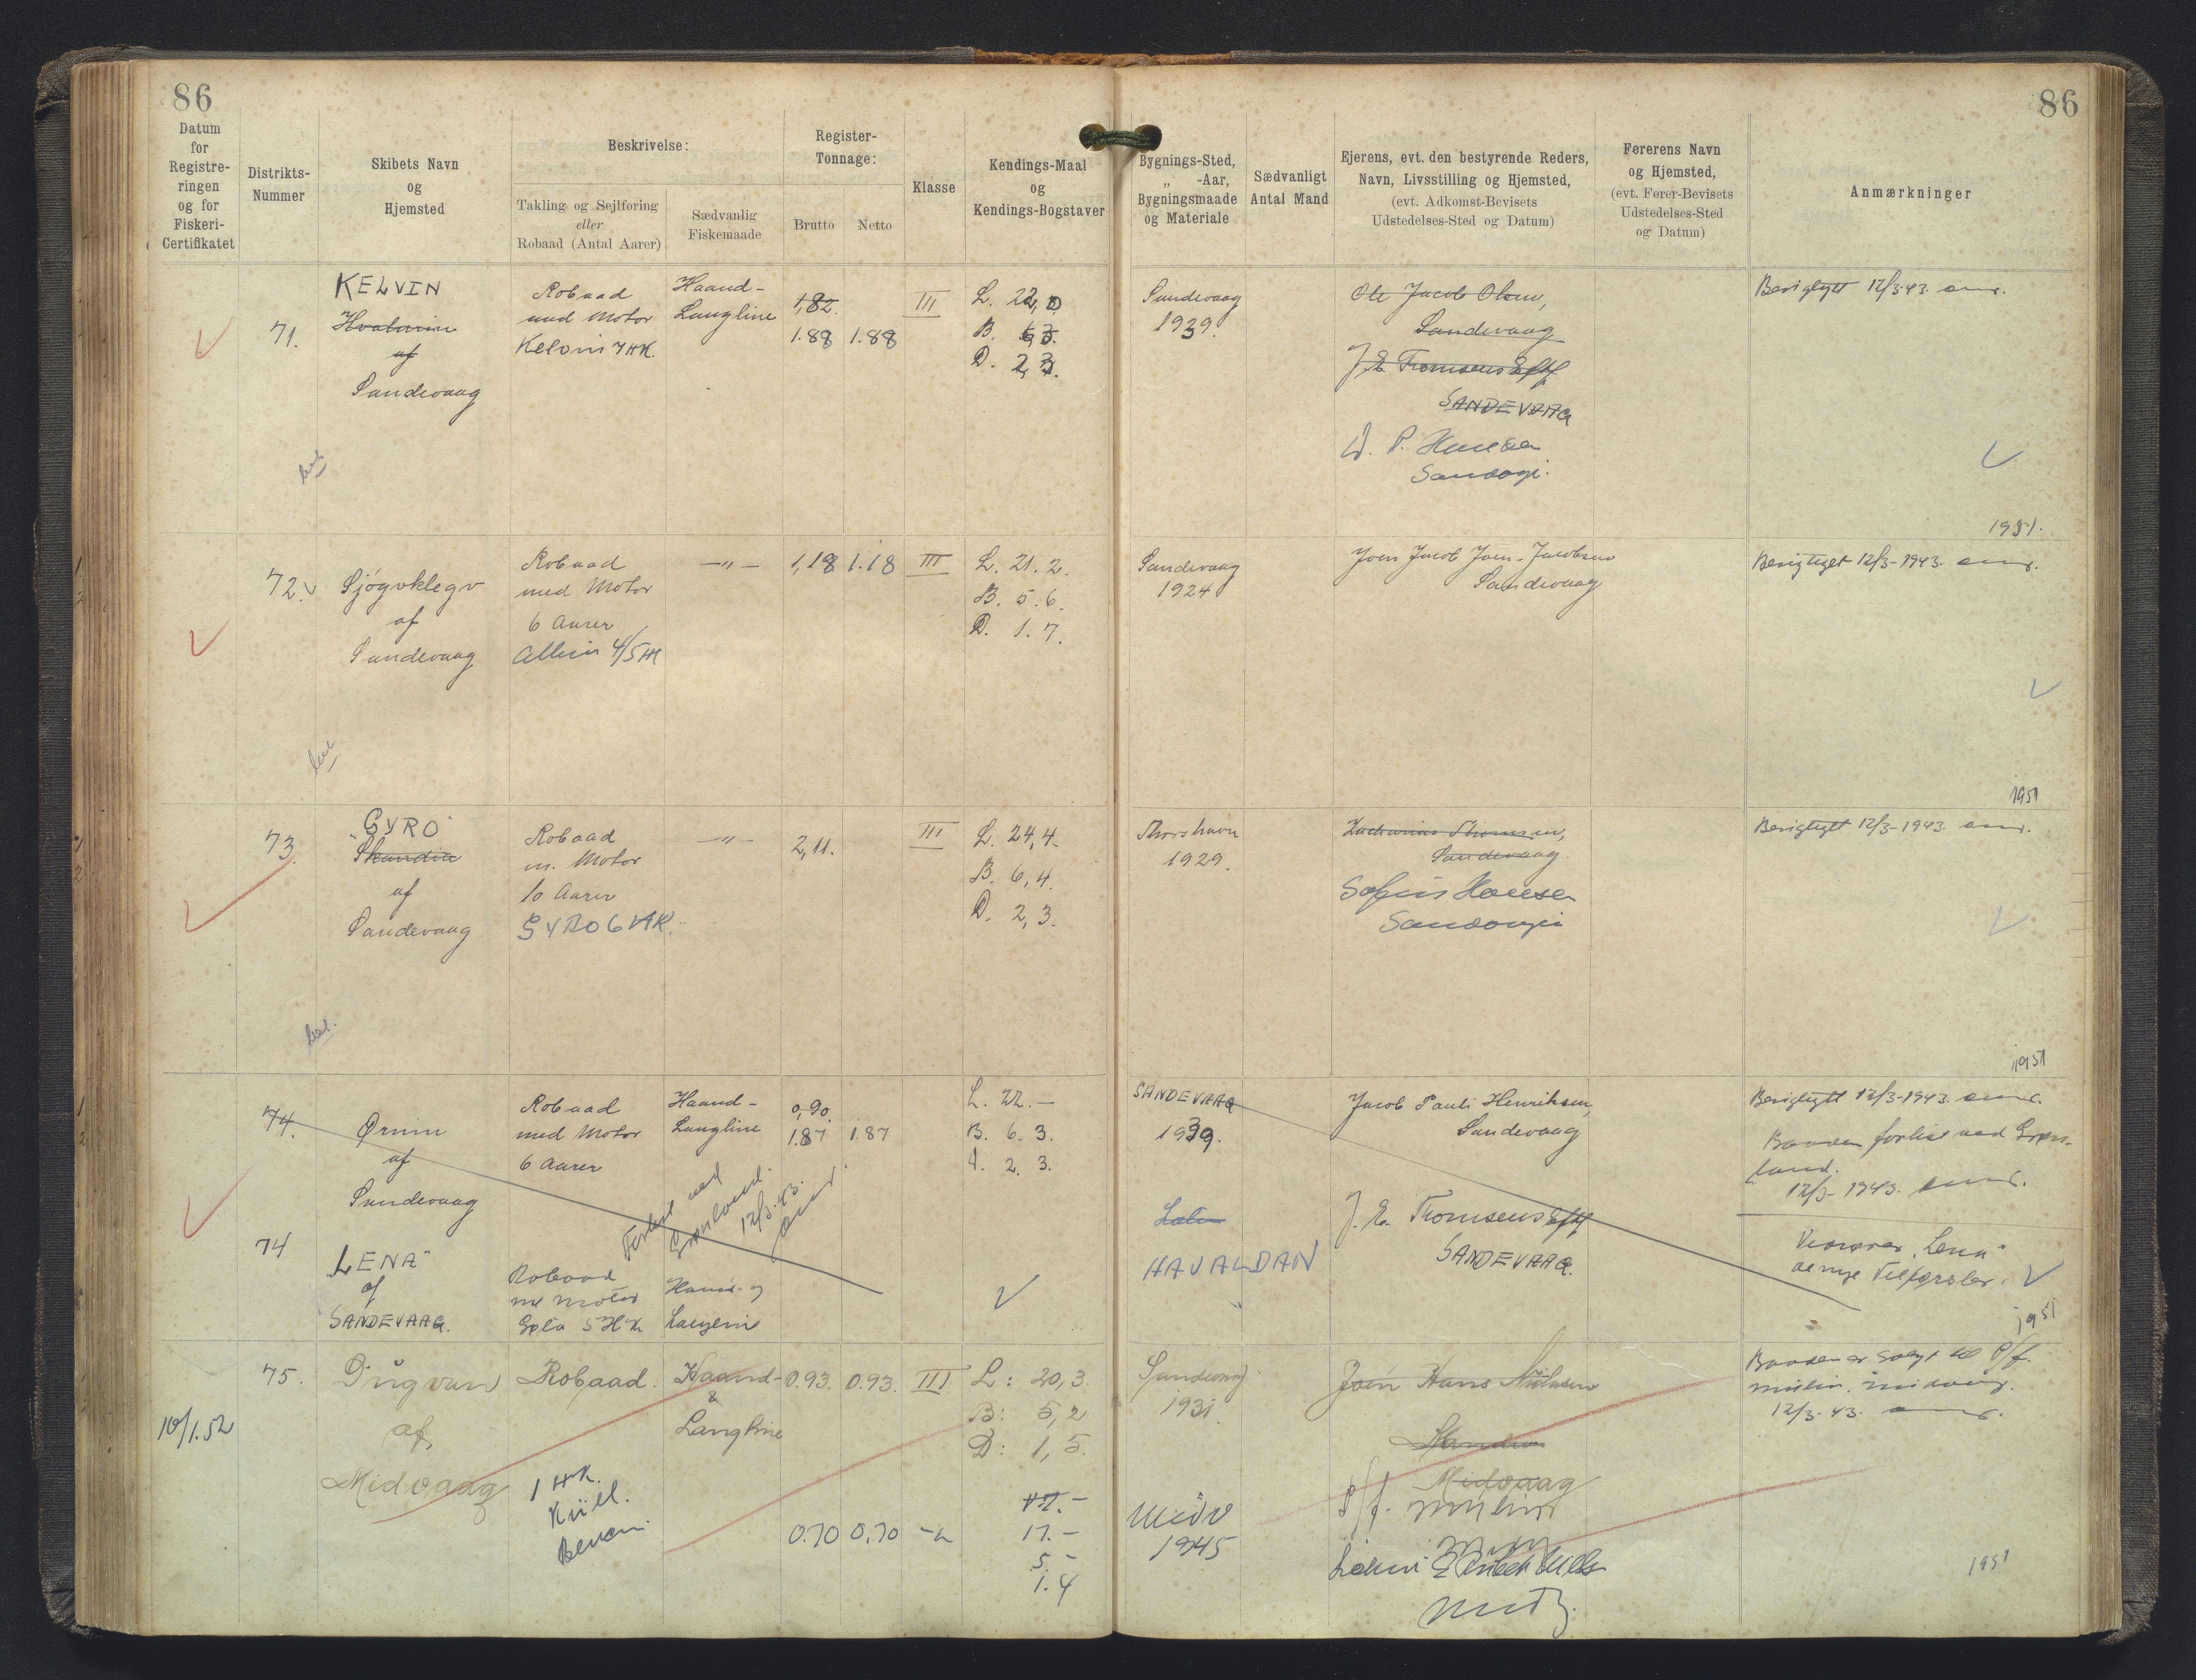 86
86
Datum
for
Registre-
ringen
og for
Fiskeri-
Certifikatet
Distrikts-
Nummer
Skibets Navn
og
Hjemsted
Beskrivelse:
Takling og Sejlføring
eller
Robaad (Antal Aarer)
Sædvanlig
Fiskemaade
Register-
Tonnage:
Brutto
Netto
Klasse
Kendings-Maal
og
Kendings-Bogstaver
Bygnings-Sted,
„ -Aar,
Bygningsmaade
og Materiale
Sædvanligt
Antal Mand
Ejerens, evt. den bestyrende Reders,
Navn, Livsstilling og Hjemsted,
(evt. Adkomst-Bevisets
Udstedelses-Sted og Datum)
Førerens Navn
og Hjemsted,
(evt. Fører-Bevisets
Udstedelses-Sted
og Datum)
Anmærkninger
71.
KELVIN
af
Sandevaag
Robaad
med Motor
Kelvin 7 HK.
Haand-
Langline
1,82.
1.88 1.88
III
L. 22,0
B. 6,3.
D. 2,3.
Sandevaag
1939.
Ole Jacob Olsen,
Sandevaag
J. E. Thomsens Eftf
SANDEVAAG
D. P. Hansen
Sandvági.
Berigtiget 12/3 43.
1951.
72.
Sjógvklegv
af
Sandevaag
Robaad
med Motor
6 Aarer
Albin 4/5 HK
—"—
1,18 1.18
III
L. 21.2.
B. 5.6.
D. 1.7.
Sandevaag
1924
Joen Jacob Joen-Jacobsen
Sandevaag
Berigtiget 12/3-1943.
1951
73.
"GYRO"
Skandia
af
Sandevaag
Robaad
m. Motor
10 Aarer
GYRO 6 HK.
—"—
2,11.
III
L. 24,4.
B. 6,4.
D. 2,3.
Thorshavn
1929.
Zacharias Thomsen,
Sandevaag.
Sofus Hansen
Sandvági
Berigtiget 12/3-1943.
1951
74.
Ørnin
af
Sandevaag
Robaad
med Motor
6 Aarer
Haand-
Langline
0,90
1.87 1.87
L. 22.—
B. 6. 3.
d. 2. 3.
SANDEVAAG
1939.
Jacob Pauli Henriksen,
Sandevaag
Berigtiget 12/3-1943.
Baaden forlist ved Grøn-
land.
12/3-1943.
Forlist ved
Grønland.
12/3.43.
74
"LENA"
af
SANDEVAAG.
Robaad
m/ Motor
Søla 5 HK
Haand- og
Langline
HAVALDAN
J. E. Thomsens Eftf
SANDEVAAG.
"Lena"
1951
10/1.52
75.
Dúgvan
af
Midvaag
Robaad.
Haand-
&
Langline
0.93. 0.93.
III
L: 20,3.
B: 5,2
D: 1,5.
Sandevaag
1931.
Joen Hans Nielsen
Midvaag
P/f.
Baaden er solgt til P/f.
12/3-43.
1 HK.
0.70 0.70
17.-
5.-
1.4
Midv
1945
1951